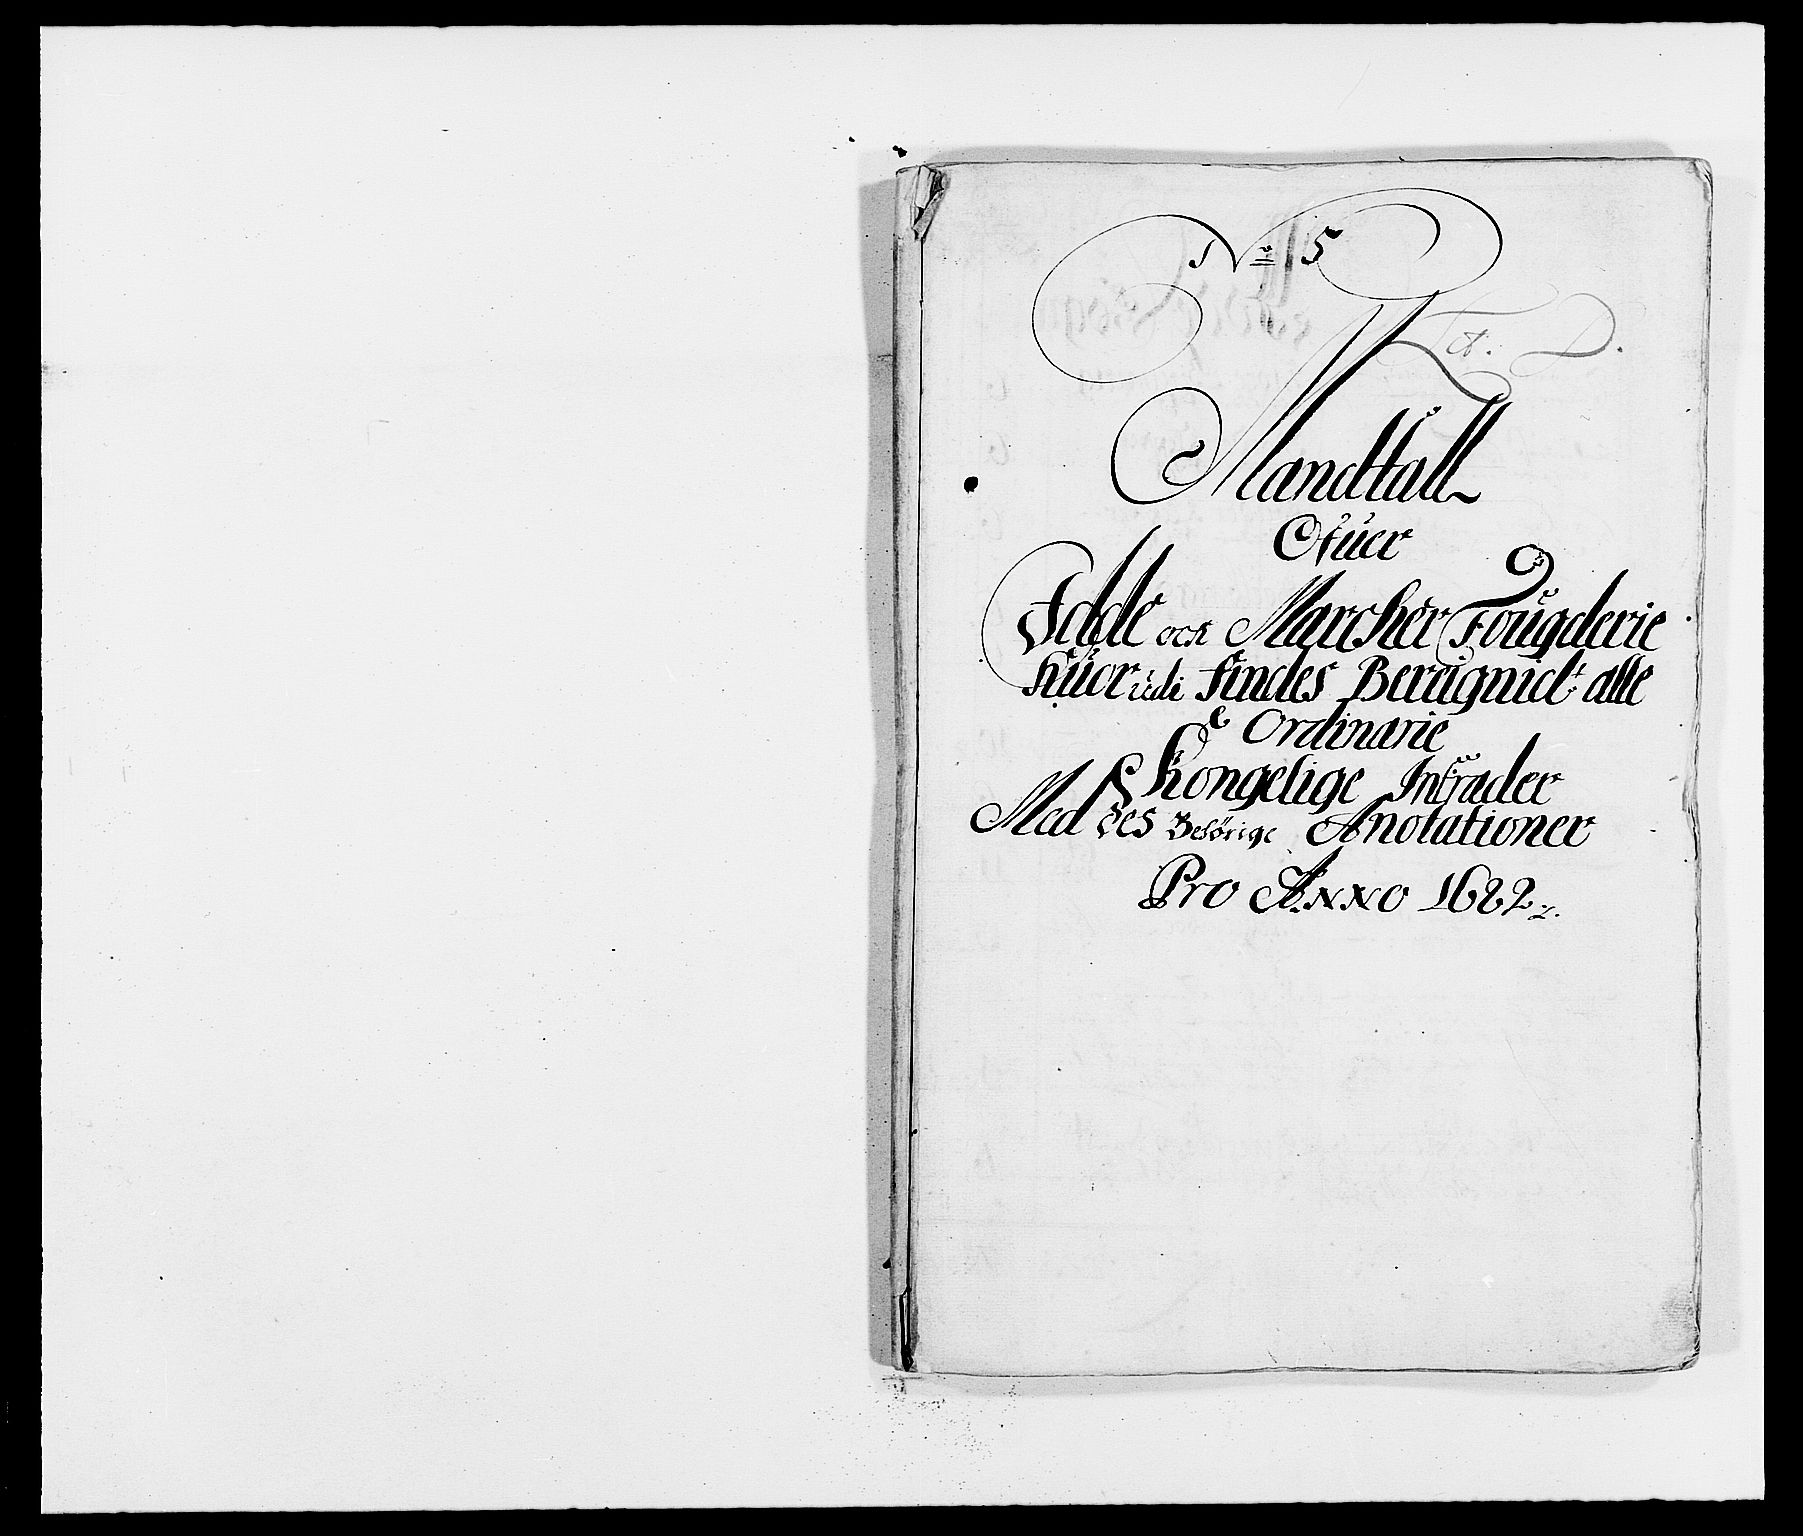 No 5
Lit. D.
Mandtall
Ofuer
Idde och Marcher Fougderie
huor udi findes Bereignidt alle
Ordinarie
Kongelige Intrader
Med des Behörige Anotationer
Pro Anno 1682